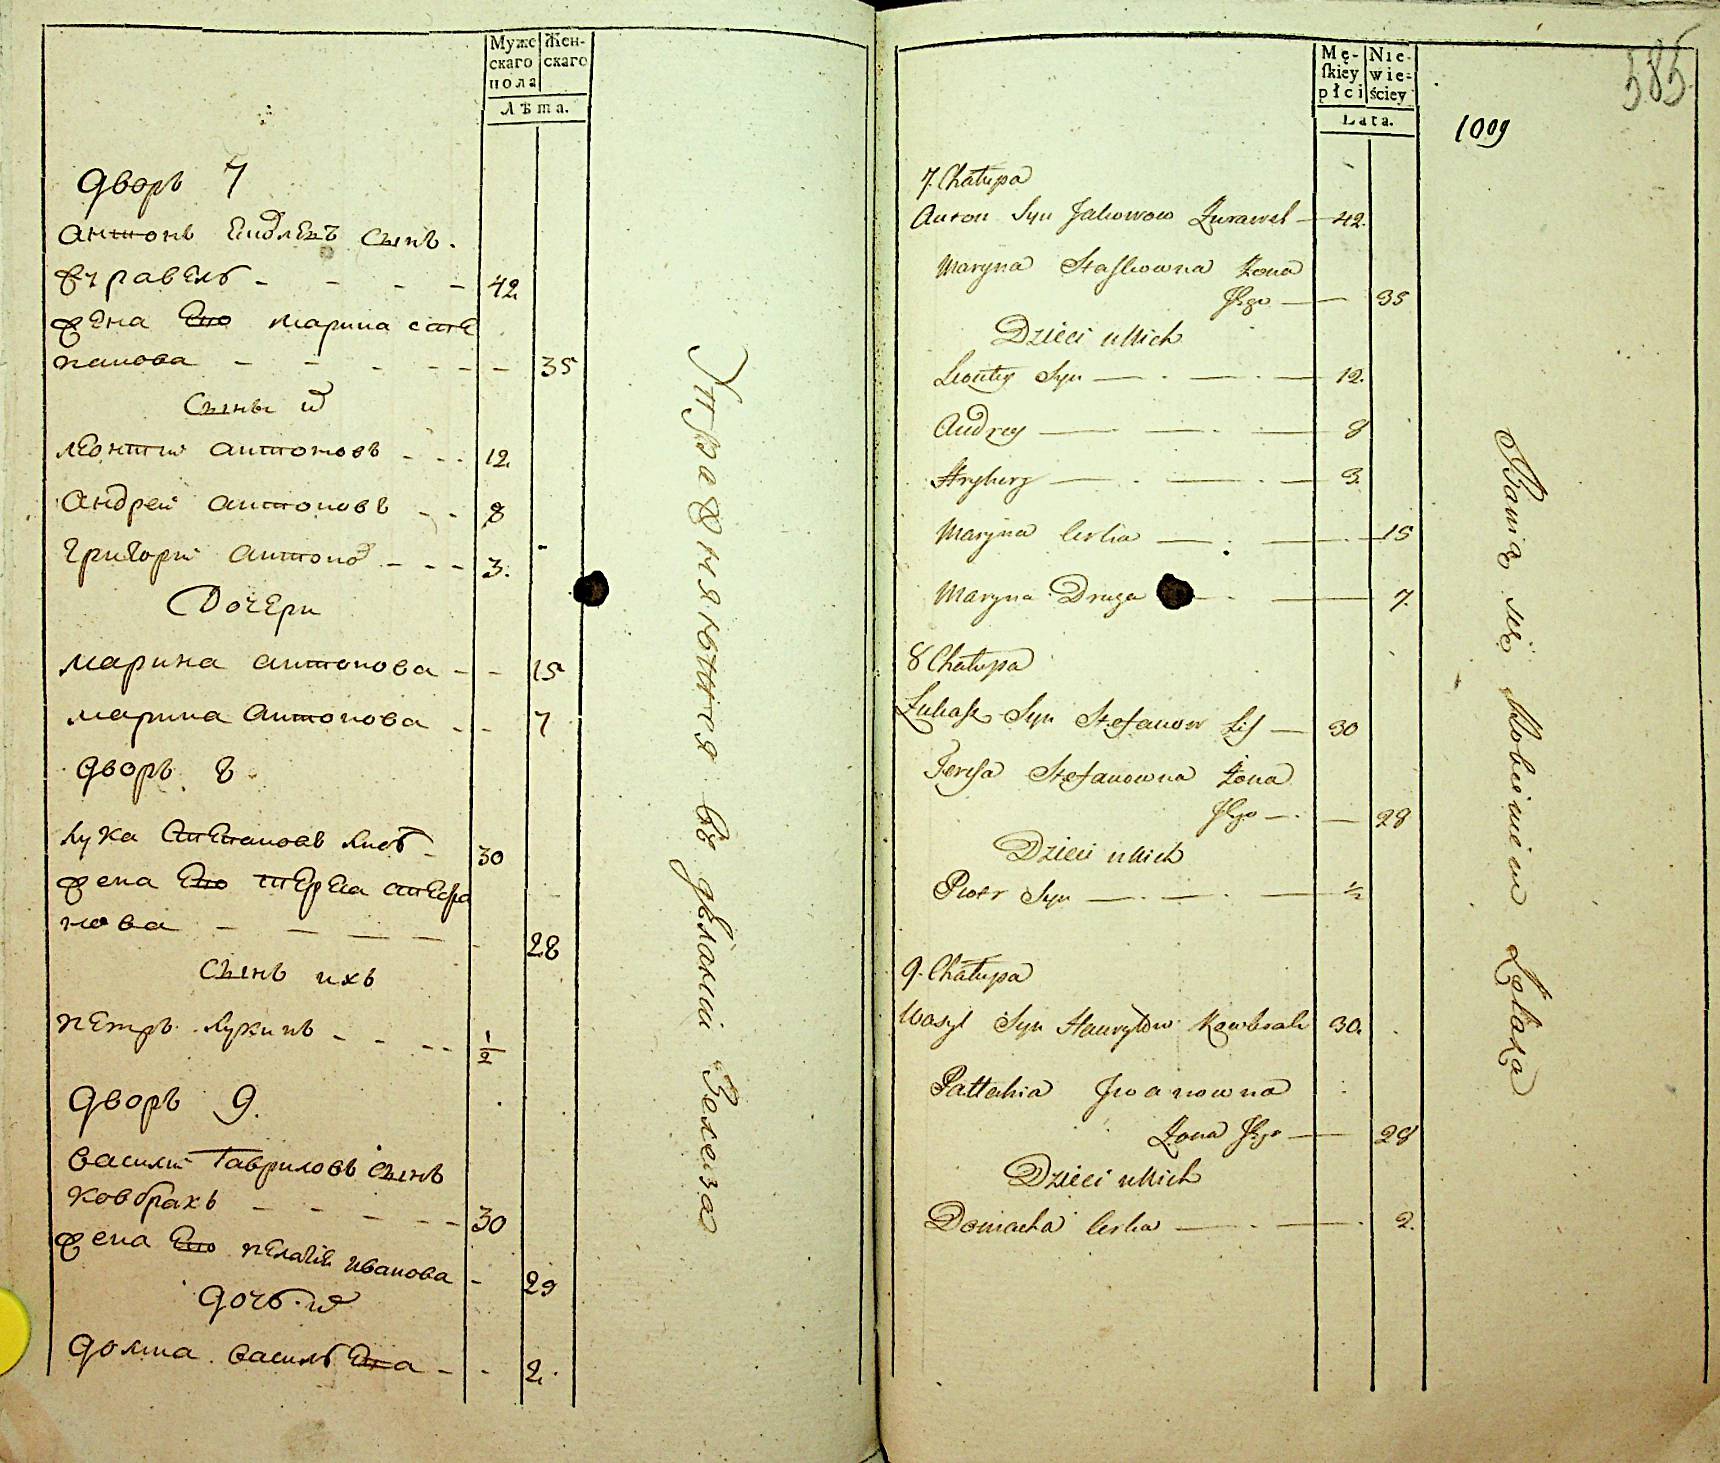 Муже
скаго
пола
Жен-
скаго
Лѣта.
дворъ 7
антонъ сынъ.
журавель - - - - 42
жена Его марина сте
панова - - - - - - 35
Сыны
леонтии антоновъ - - - 12
андреи антоновъ - - 8
григории антоно - - - 3.
Дочери
марина антонова - - 15
марина антонова - - 7
дворъ 8
лука Степановъ лисъ - 30
жена Его тереса стефа
нова - - - - - 28
Сынъ ихъ
петръ лукинъ - - - - 1/2
дворъ 9.
василии Гавриловъ сынъ
ковбрахъ - - - - - 30
жена Его пелагия иванова - 29
дочь
домна васильева - - 2.
Упражняются въ делании Железа
Mę-
ſkiey
płci
Nie-
wie-
ściey
Lata.
385.
1009
7. Chałupa
Anton Syn Jakowow Żurawel - 42.
Maryna Staskowna Żona
Jego - 35
Dzieci u Nich
Leonty Syn - 12.
Andrey - 8
Hryhory - 3.
Maryna Corka - 15
Maryna Druga - 7.
8 Chałupa
Łukasz Syn Stefanow Lis - 30
Teresa Stefanowna Żona
Jego - 28
Dzieci u Nich
Piotr Syn - 1/2
9. Chałupa
Wasyl Syn Hawryłow Kowbrah 30.
Pałahia Jwanowna
Żona Jego - 29
Dzieci u Nich
Domacha Corka - 2.
Bawią się Robieniem Żelaza